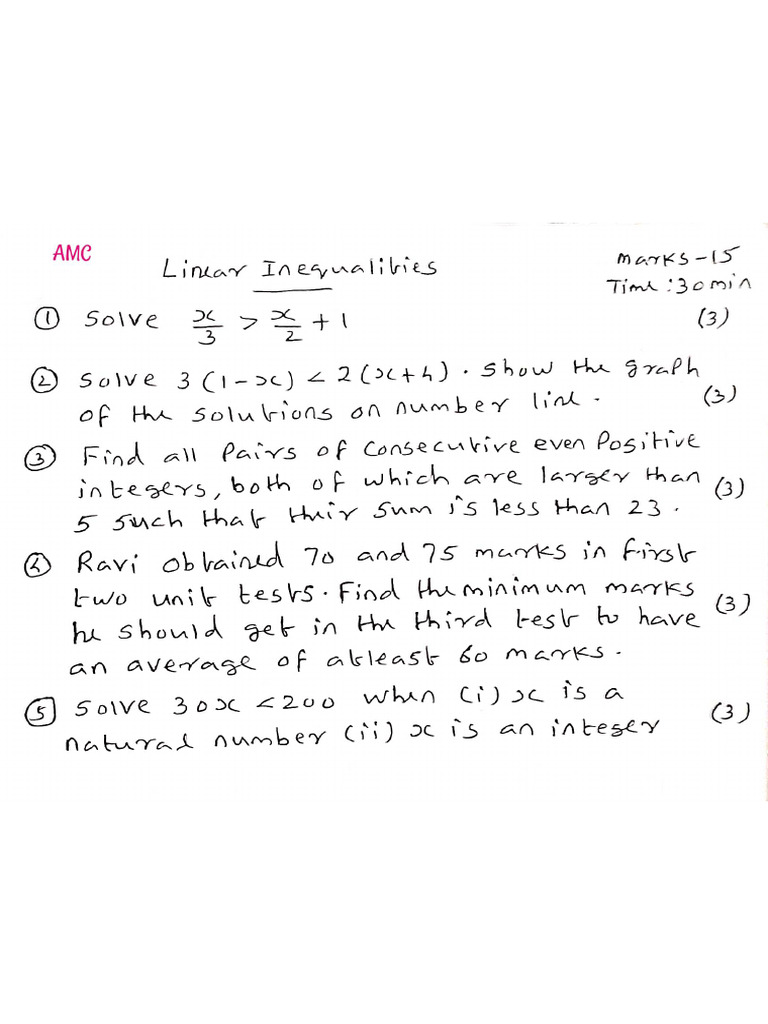 AMC
Linear Inequalities
Marks-15
Time: 30 min
① Solve x/3 > x/2 + 1 (3)
② Solve 3(1-x) < 2(x+4). Show the graph
of the solutions on number line. (3)
③ Find all Pairs of consecutive even Positive
integers, both of which are larger than (3)
5 such that their sum is less than 23.
④ Ravi obtained 70 and 75 marks in first
two unit tests. Find the minimum marks
he should get in the third test to have (3)
an average of atleast 60 marks.
⑤ Solve 30x < 200 when (i) x is a
natural number (ii) x is an integer (3)